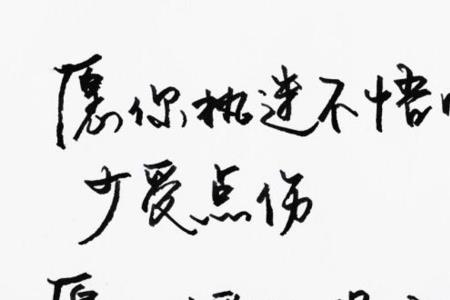 愿你执迷不悟
少爱点伤
愿